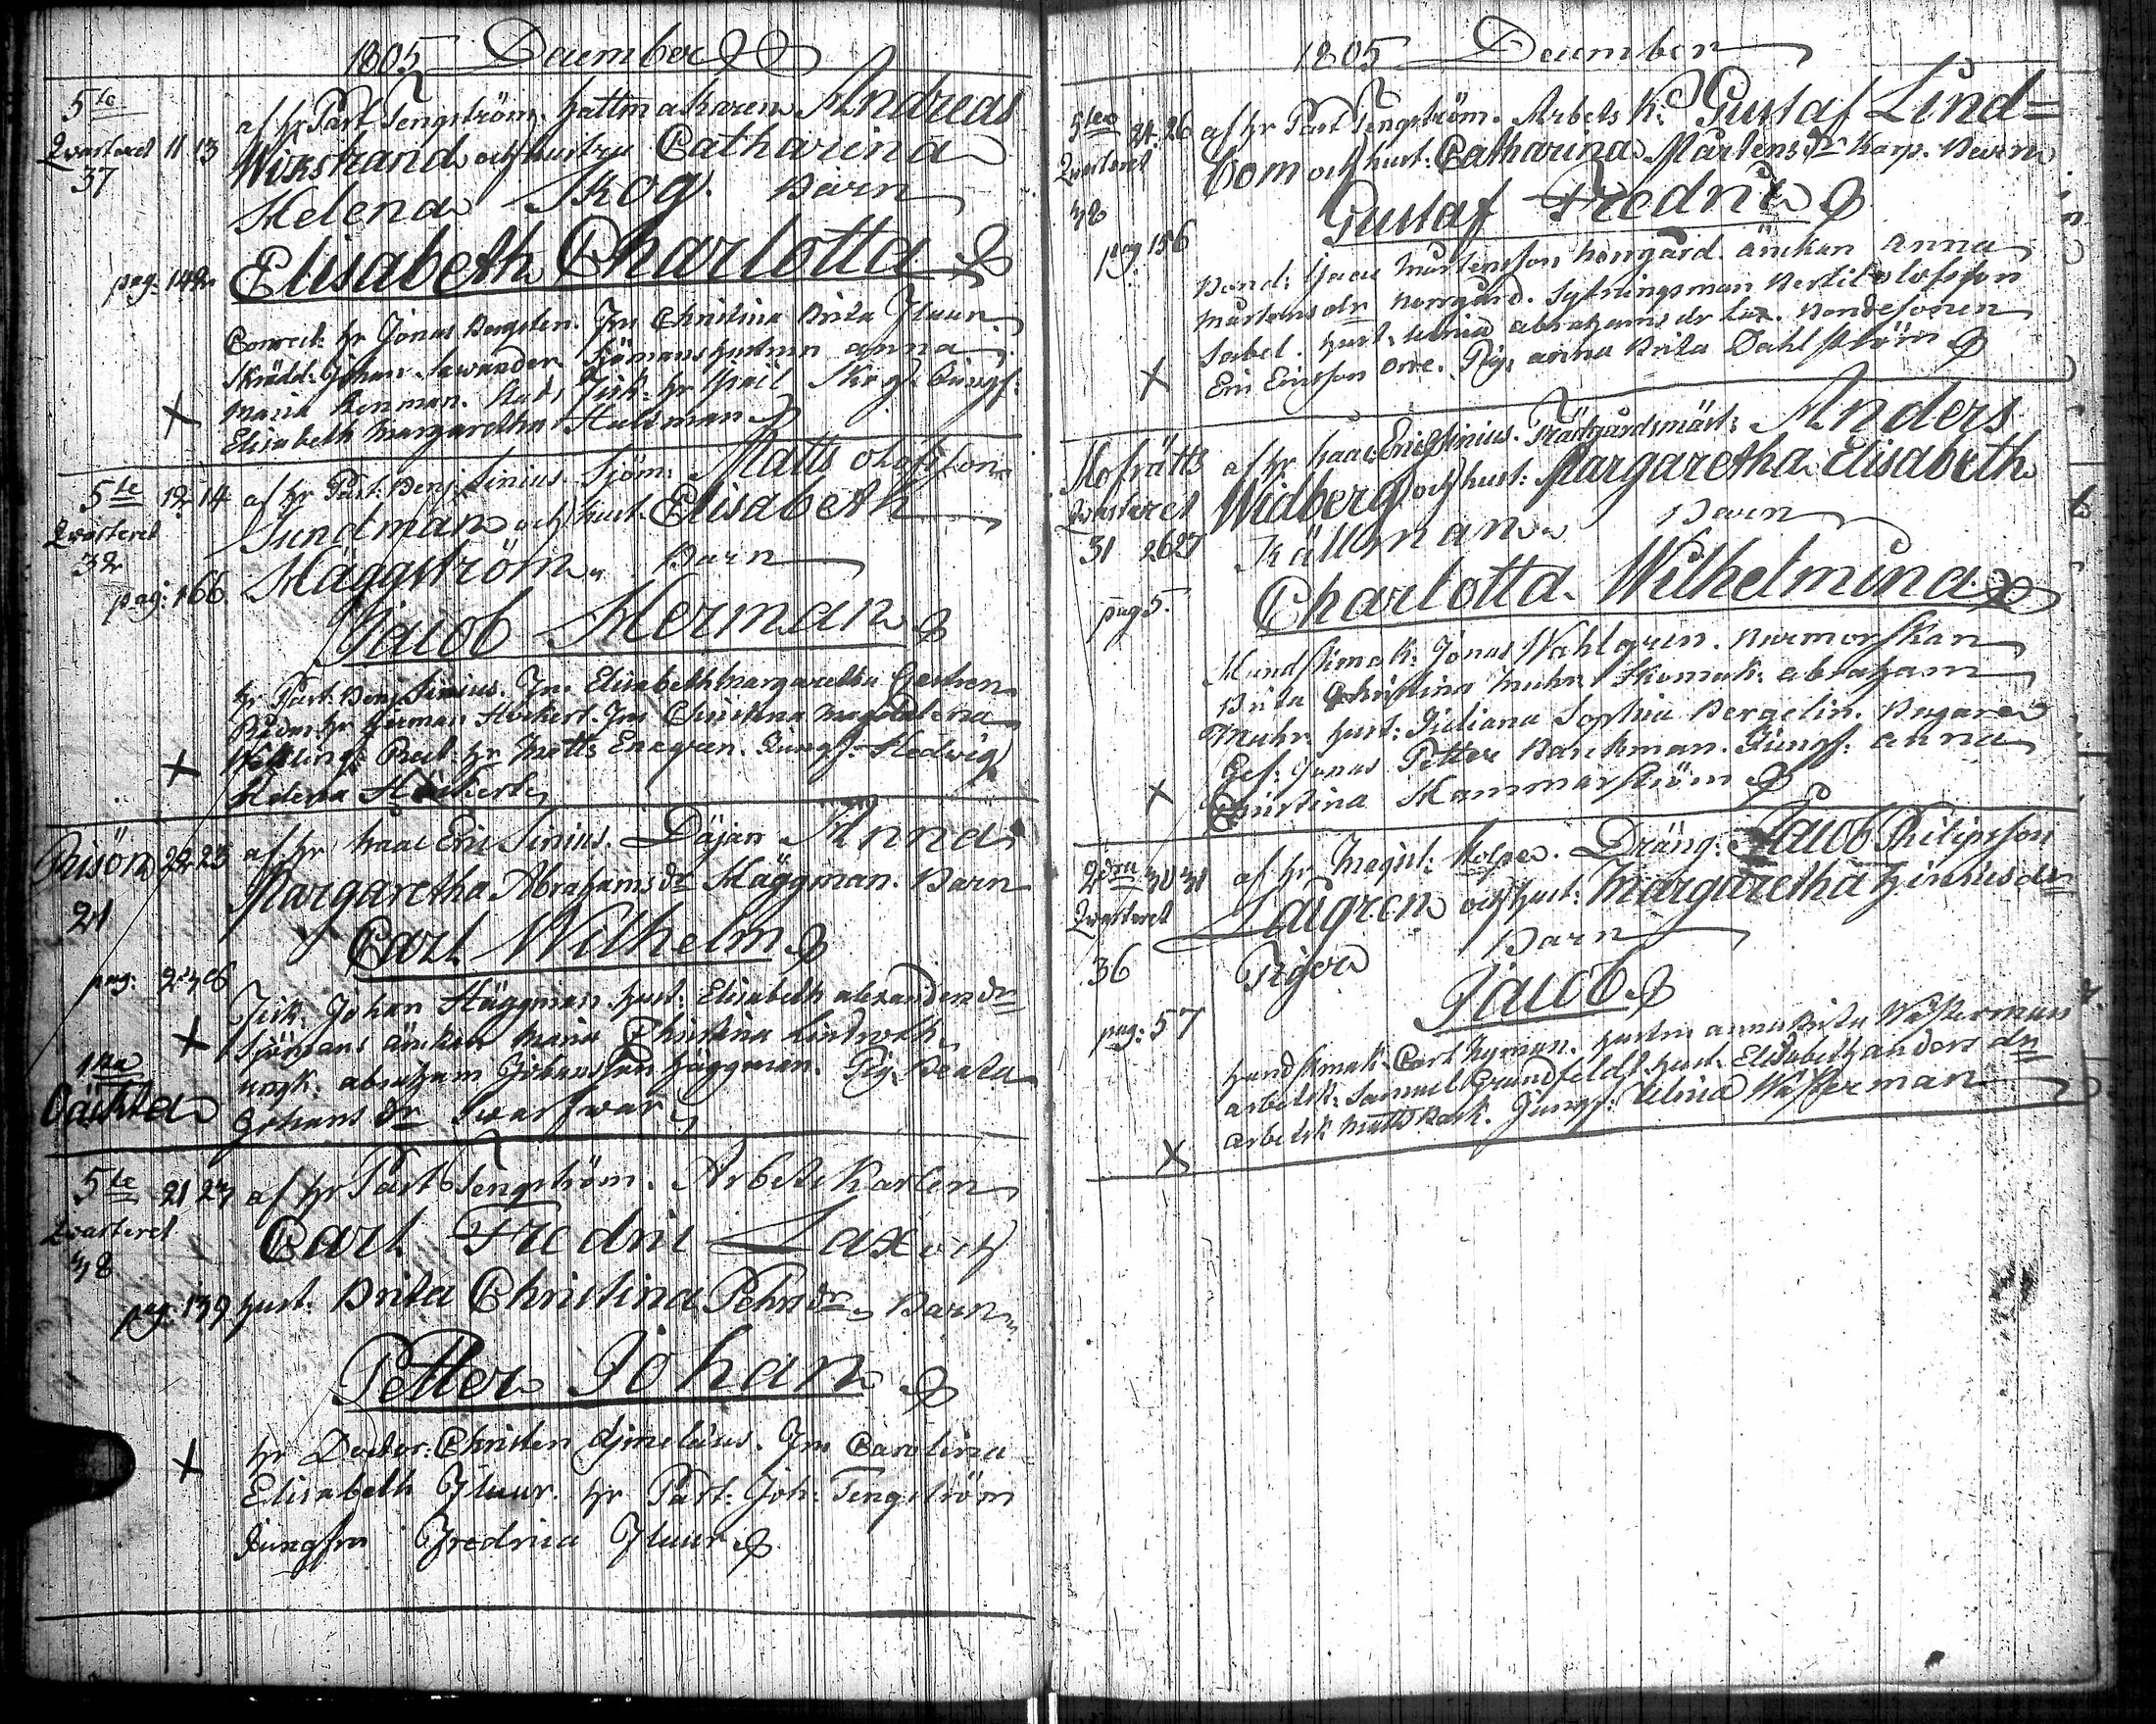 1805 December
5te Qvarteret 37 11 13 af hr Past. Tengström. hattmakaren Andreas
Wikstrand och hustru Catharina
Helena Skog. Barn
pag: 142 Elisabeth Charlotta
Conrect: hr Jonas Bergsten. Fru Christina Brita
Skrädd: Johan Lewander. Sjömans hustrun anna
Maria Benman. Jungf:
Elisabeth Margaretha Hulsman
5te Qvarteret 32 12 14 af hr Past: Benj. Sinius. Sjöm: Matts olofsson
Sundman och hust. Elisabeth
pag: 166 Häggström. Barn
Jacob Herman
hr Past: Benj Sinius. Fru Elisabeth Margaretha Castren
Rådm: hr Herman Höckert. Fru Christina Magdalena
hr Matts Enegren. Jungf: Hedwig
Helena Höckert
Prison 21 22 25 af hr Eric Sinius. Däjan Anna
Margaretha Abrahams dr Häggman. Barn
Carl Wilhelm
pag:
Fisk: Johan Häggman hust: Elisabeth alexanders dr
Sjömans änkan Maria Christina Lindroth
1sta abraham Johansson Häggman. Pig. Beata
Oächta Johans dr Swarfwar
5te Qvarteret 38 21 23 af hr Past Tengström. Arbetskarlen
Carl Fredric Lax och
pag: 139 hust: Brita Christina Pehrs dr Barn
Petter Johan
hr Doctor: Christen Fru Carolina
Elisabeth hr Past: Joh: Tengström
Jungfru Fredrica
1805 December
5te Qvarteret 38 24 26 af hr Past Tengström. Arbets K: Gustaf Lind=
bom och hust: Catharina Mårtens dr Karp. Barn
Gustaf Fredric
pag 156
Bond: Isaac Mårtensson änkan anna
Mårtens dr Norrgård. Sytningsman Bertil olofsson
Sabel. hust. Ulrica abrahams dr Lax. Bondesonen
Eric Ericsson orre. Pig: anna Brita Dahlström
Hofrätts Qvarteret 31 26 27 af hr Isaac Eric Sinius. Trädgårdsmäst: Anders
Widberg och hust: Margaretha Elisabeth
Källman. Barn
pag 5. Charlotta Wilhelmina
Handskmak: Jonas Wahlgren. Barmorskan
Brita Christina Muhr. Skomak: abraham
Muhr. hust: Juliana Sophia Bergelin. Bagare
Gef: Jonas Petter Backman. Jungf: anna
Christina Hammarström
2dra Qvarteret 36 30 31 af hr Magist: Holpe. Dräng: Jacob Philipsson
Laugren och hust: Margaretha Hinrics dr
Tiger Barn
Jacob
pag: 57
Handskmak: Carl Nyman. hustru anna Brita Wasserman
arbetsk: Samuel Grundfeldt hust. Elisabeth anders dr
arbetsk Matts Back. Jungf: Ulrica Wasserman